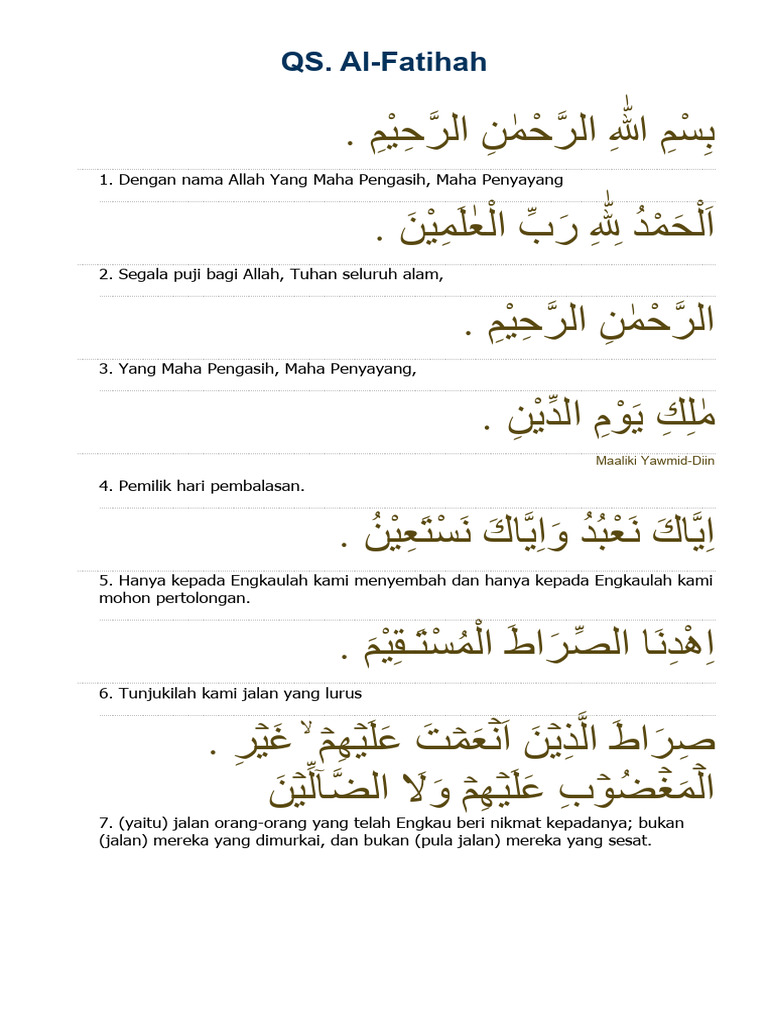 QS. Al-Fatihah
بِسْمِ اللّٰهِ الرَّحْمٰنِ الرَّحِيْمِ .
1. Dengan nama Allah Yang Maha Pengasih, Maha Penyayang
اَلْحَمْدُ لِلّٰهِ رَبِّ الْعٰلَمِيْنَ .
2. Segala puji bagi Allah, Tuhan seluruh alam,
الرَّحْمٰنِ الرَّحِيْمِ .
3. Yang Maha Pengasih, Maha Penyayang,
مٰلِكِ يَوْمِ الدِّيْنِ .
Maaliki Yawmid-Diin
4. Pemilik hari pembalasan.
اِيَّاكَ نَعْبُدُ وَاِيَّاكَ نَسْتَعِيْنُ .
5. Hanya kepada Engkaulah kami menyembah dan hanya kepada Engkaulah kami
mohon pertolongan.
اِهْدِنَا الصِّرَاطَ الْمُسْتَـقِيْمَ .
6. Tunjukilah kami jalan yang lurus
صِرَاطَ الَّذِيْنَ اَنْعَمْتَ عَلَيْهِمْ ۙ غَيْرِ .
الْمَغْضُوْبِ عَلَيْهِمْ وَلَا الضَّآلِّيْنَ
7. (yaitu) jalan orang-orang yang telah Engkau beri nikmat kepadanya; bukan
(jalan) mereka yang dimurkai, dan bukan (pula jalan) mereka yang sesat.